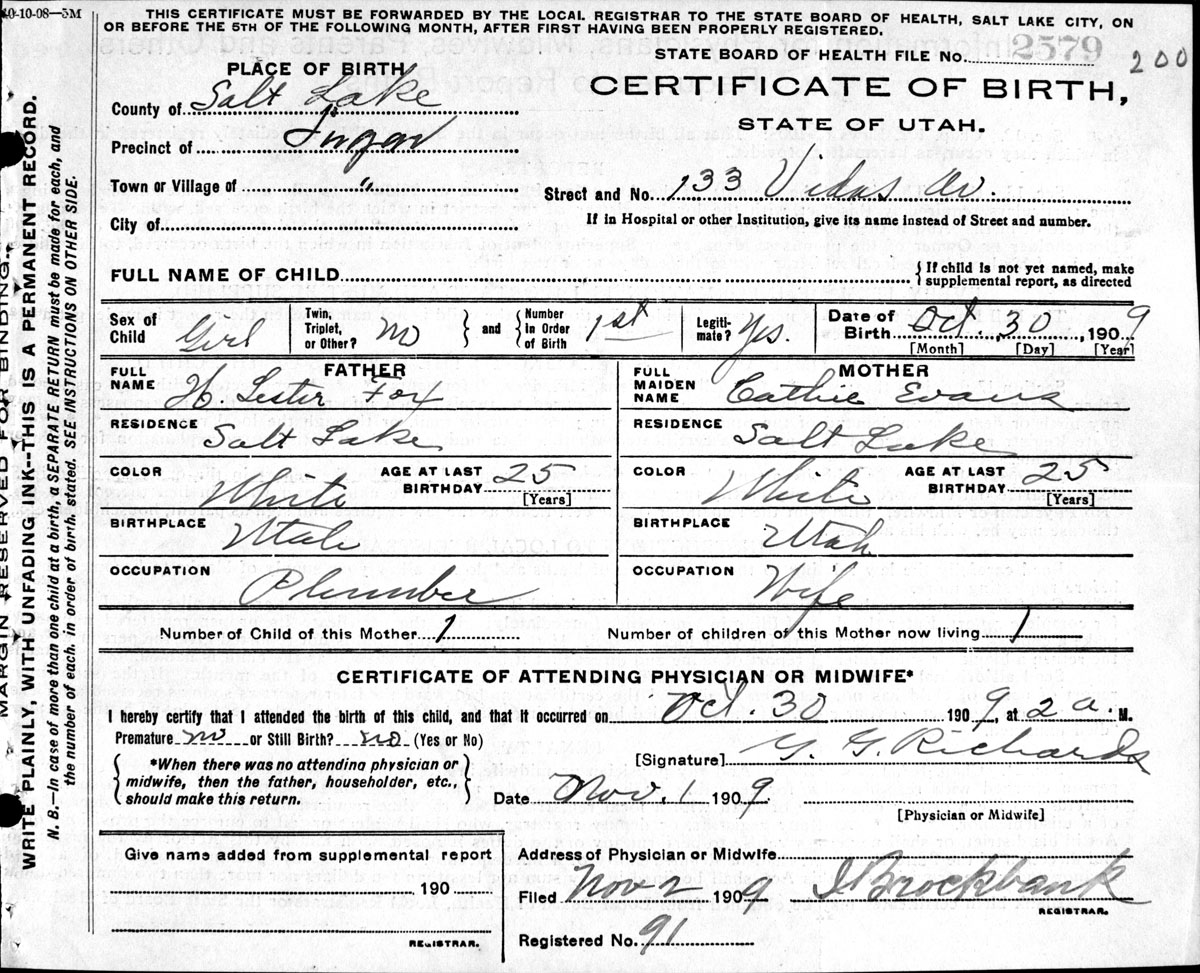 10-10-08—5M
THIS CERTIFICATE MUST BE FORWARDED BY THE LOCAL REGISTRAR TO THE STATE BOARD OF HEALTH, SALT LAKE CITY, ON
OR BEFORE THE 5TH OF THE FOLLOWING MONTH, AFTER FIRST HAVING BEEN PROPERLY REGISTERED.
STATE BOARD OF HEALTH FILE NO. 2579
200
PLACE OF BIRTH
CERTIFICATE OF BIRTH,
STATE OF UTAH.
County of Salt Lake
Precinct of Sugar
Town or Village of "
Street and No. 133 Vidas Av.
City of
If in Hospital or other Institution, give its name instead of Street and number.
FULL NAME OF CHILD
{If child is not yet named, make
supplemental report, as directed
Sex of Child Girl
Twin, Triplet, or Other? No
and
Number in Order of Birth 1st
Legiti-mate? Yes.
Date of Birth Oct. 30, 1909
[Month] [Day] [Year]
FATHER
FULL NAME H. Lester Fox
MOTHER
FULL MAIDEN NAME Cathie Evans
RESIDENCE Salt Lake
RESIDENCE Salt Lake
COLOR White
AGE AT LAST BIRTHDAY 25
[Years]
COLOR White
AGE AT LAST BIRTHDAY 25
[Years]
BIRTHPLACE Utah
BIRTHPLACE Utah
OCCUPATION Plumber
OCCUPATION Wife
Number of Child of this Mother 1
Number of children of this Mother now living 1
CERTIFICATE OF ATTENDING PHYSICIAN OR MIDWIFE*
I hereby certify that I attended the birth of this child, and that it occurred on Oct. 30 1909, at 2 a. M.
Premature no or Still Birth? no (Yes or No)
[Signature] G. Richards
{*When there was no attending physician or
midwife, then the father, householder, etc.,
should make this return.}
Date Nov. 1 1909
[Physician or Midwife]
Give name added from supplemental report
190
REGISTRAR.
Address of Physician or Midwife
Filed Nov 2 1909 Brockbank
REGISTRAR.
Registered No. 91
MARGIN RESERVED FOR BINDING.
WRITE PLAINLY, WITH UNFADING INK--THIS IS A PERMANENT RECORD.
N. B.—In case of more than one child at a birth, a SEPARATE RETURN must be made for each, and
the number of each, in order of birth, stated. SEE INSTRUCTIONS ON OTHER SIDE.